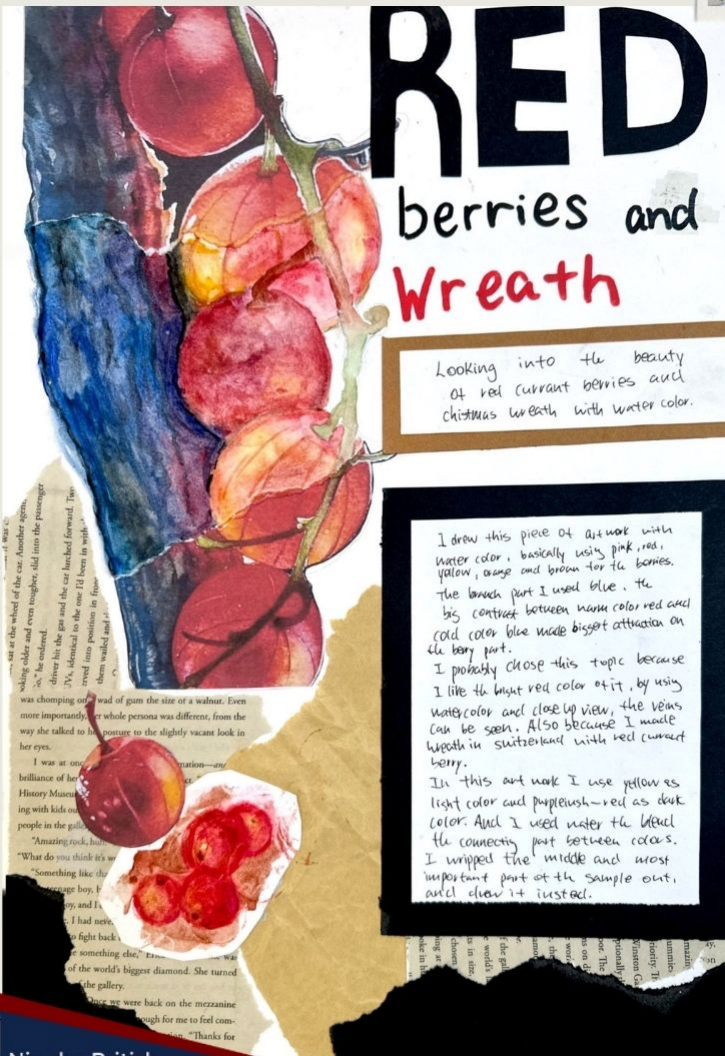 RED
berries and
Wreath
Looking into the beauty
of red currant berries and
chistmas wreath with water color.
I drew this piece of artwork with
water color, basically using pink, red,
yellow, orange and brown for the berries.
The branch part I used blue. the
big contrast between warm color red and
cold color blue made biggest attraction on
the berry part.
I probably chose this topic because
I like the bright red color of it, by using
watercolor and close up view, the veins
can be seen. Also because I made
wreath in switzerland with red currant
berry.
In this art work I use yellow as
light color and purpleish-red as dark
color. And I used water the blend
the connecting part between colors.
I wripped the middle and most
important part of the sample out,
and drew it insted.
sat at the wheel of the car. Another agent,
oking older and even tougher, slid into the passenger
he ordered.
driver hit the gas and the car lurched forward. Two
Vs, identical to the one I'd been in with
rved into position in
them wailed and
was chomping on wad of gum the size of a walnut. Even
more importantly, er whole persona was different, from the
way she talked to posture to the slightly vacant look in
her eyes.
I was at on
brilliance of he
History Museu
ing with kids ou
people in the galle
"Amazing rock, huh
"What do you think it's w
"Something like
enage boy,
oy, and I
I had neve
o fight back
e something else,"
of the world's biggest diamond. She turned
the gallery.
Once we were back on the mezzanine
ough for me to feel com-
"Thanks for